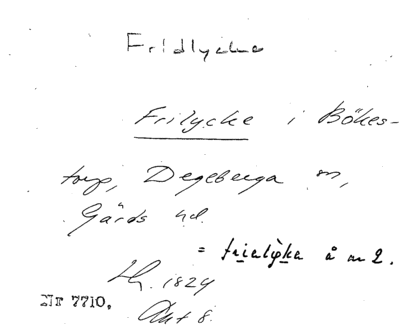 Fridlycke
Frilycke i Bökes-
torp, Degeberga sn,
Gärds hd.
= frielyka å m 2.
Lh. 1824
Nr 7710,
Akt 8.